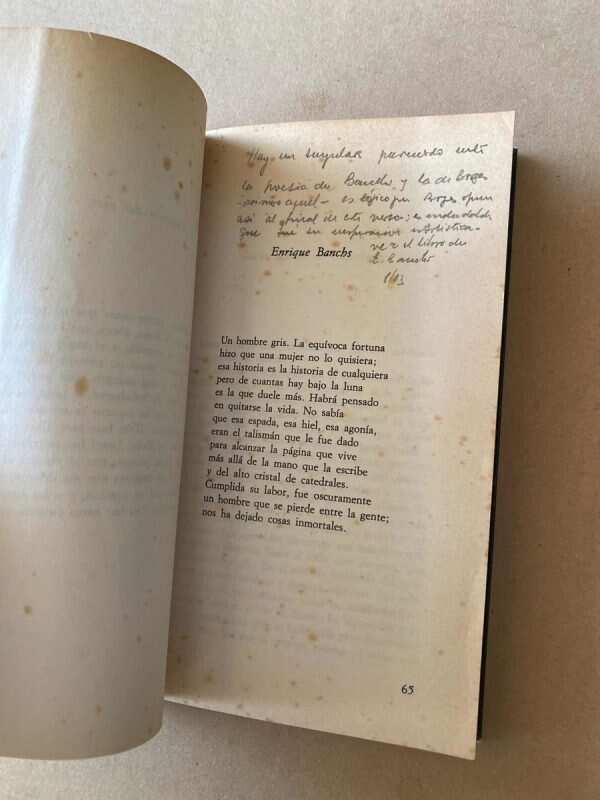 Hay un singular parecido entre
la poesía de Banchs y la de Borges
es lógico que Borges
así al final de este verso; es
que fue su artística
ver el libro de
E. Banchs
Enrique Banchs
Un hombre gris. La equívoca fortuna
hizo que una mujer no lo quisiera;
esa historia es la historia de cualquiera
pero de cuantas hay bajo la luna
es la que duele más. Habrá pensado
en quitarse la vida. No sabía
que esa espada, esa hiel, esa agonía,
eran el talismán que le fue dado
para alcanzar la página que vive
más allá de la mano que la escribe
y del alto cristal de catedrales.
Cumplida su labor, fue oscuramente
un hombre que se pierde entre la gente;
nos ha dejado cosas inmortales.
65